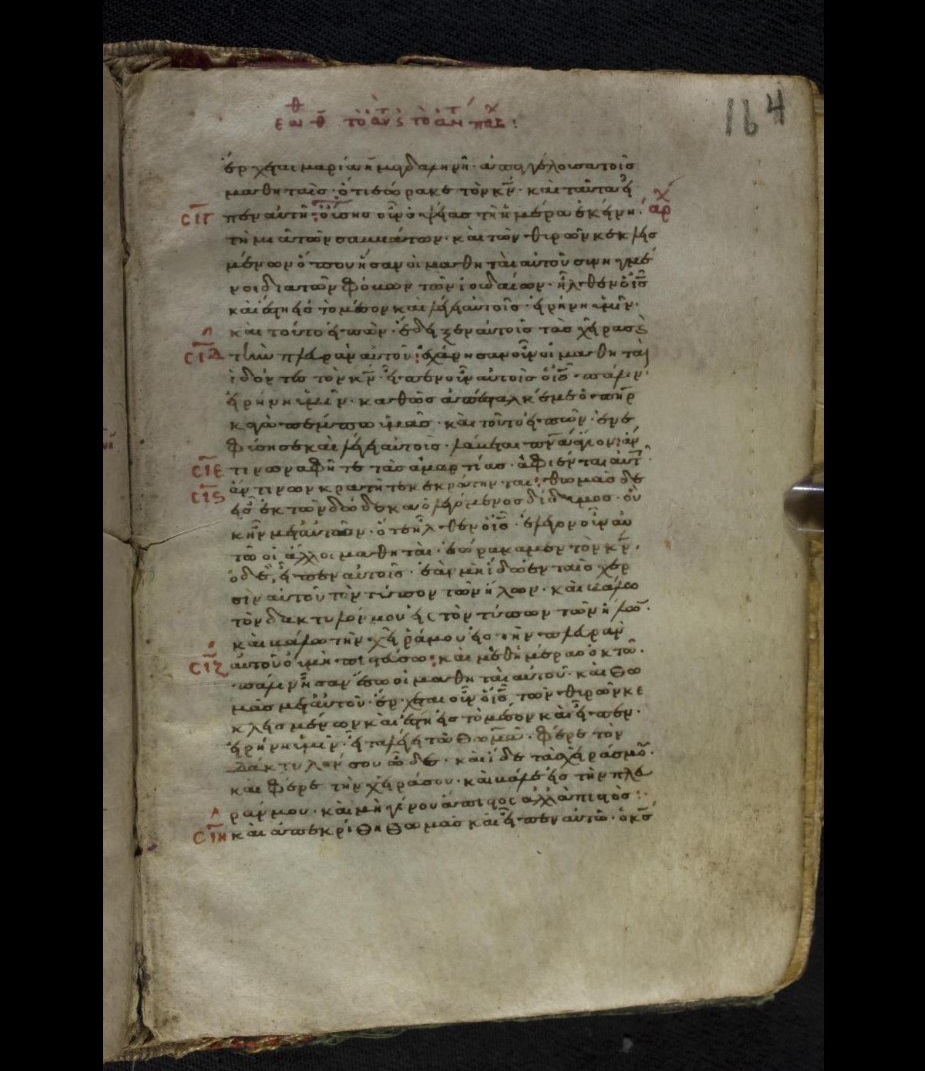 164
ἔρχεται μαρία ἡ μαγδαληνὴ ἀπαγγέλουσα τοῖς
μαθηταῖς · ὅτι εὥρακε τὸν κν̄ · καὶ ταῦτα εἶ
σιγ πεν αὐτῆ : οὔσης οὖν ὀψίας τῆ ἡμέρα ἐκείνη · ἀρχ
τῆ μιᾶ τῶν σαμμάτων · καὶ τῶν θυρῶν κεκλης
μένων ὅπου ἦσαν οἱ μαθηταὶ αὐτοῦ συνηγμέ
νοι διὰ τὸν φόβων τῶν ἰουδαίων · ἦλθεν ὁ ις̄
καὶ ἔστη εἰς τὸ μέσον καὶ λέγει αὐτοῖς · εἰρήνη ὑμῖν ·
καὶ τοῦτο εἰπὼν · ἔδειξεν αὐτοῖς τὰς χεῖρας κ
σιδ τὴν πλευρὰν αὐτοῦ : ἐχάρησαν οὖν οἱ μαθηταὶ
ἰδόντες τὸν κν̄ · εἶπεν οὖν αὐτοῖς ὁ ις̄ · πάλιν ·
εἰρήνη ὑμῖν · καθὼς ἀπέσταλκέ με ὁ πηρ
κἀγὼ πέμπω ὑμᾶς · καὶ τοῦτο εἰπὼν · ἐνε
φύσησε καὶ λέγει αὐτοῖς · λάβεται πν̄α ἅγιον · ἄν
σιε τινων ἀφῆτε τὰς ἁμαρτίας · ἀφίενται αὐτ
σις ἄν τινων κρατῆτε κεκράτηνται : θωμᾶς δὲ
εἷς ἐκ τῶν δώδεκα ὁ λεγόμενος δίδυμος · οὐ
κ ἦν μετ αὐτῶν · ὅτε ἦλθεν ὁ ις̄ · ἔλεγον οὖν αὐ
τῶ οἱ ἄλλοι μαθηταὶ · ἑωράκαμεν τὸν κν̄ ·
ὁ δὲ, εἶπεν αὐτοῖς · ἐὰν μὴ ἴδω ἐν ταῖς χερ
σὶν αὐτοῦ τὸν τύπον τῶν ἥλων · καὶ βάλω
τὸν δάκτυλόν μου εἰς τὸν τύπων τῶν ἥλω ·
καὶ βάλω τὴν χεῖρά μου εἰς τὴν πλευρὰν
σιζ αὐτοῦ οὐ μὴ πιστεύσω : καὶ μεθ ἡμέρας ὀκτὼ ·
πάλιν ἦσαν ἔσω οἱ μαθηταὶ αὐτοῦ · καὶ θω
μᾶς μετ αὐτοῦ · ἔρχεται οὖν ὁ ις̄ τῶν θυρῶν κε
κλησμένων καὶ ἔστη εἰς τὸ μέσον καὶ εἶπεν ·
εἰρήνη ὑμῖν · εἶτα λέγει τῶ θωμᾶ · φέρε τὸν
δάκτυλόν σου ὧδε · καὶ ἴδε τὰς χεῖράς μου ·
καὶ φέρε τὴν χεῖρά σου · καὶ βάλε εἰς τὴν πλευ
ράν μου · καὶ μὴ γίνου ἄπιστος ἀλλὰ πιστός :
σιη καὶ ἀπεκρίθη θωμᾶς καὶ εἶπεν αὐτῶ · ὁ κς